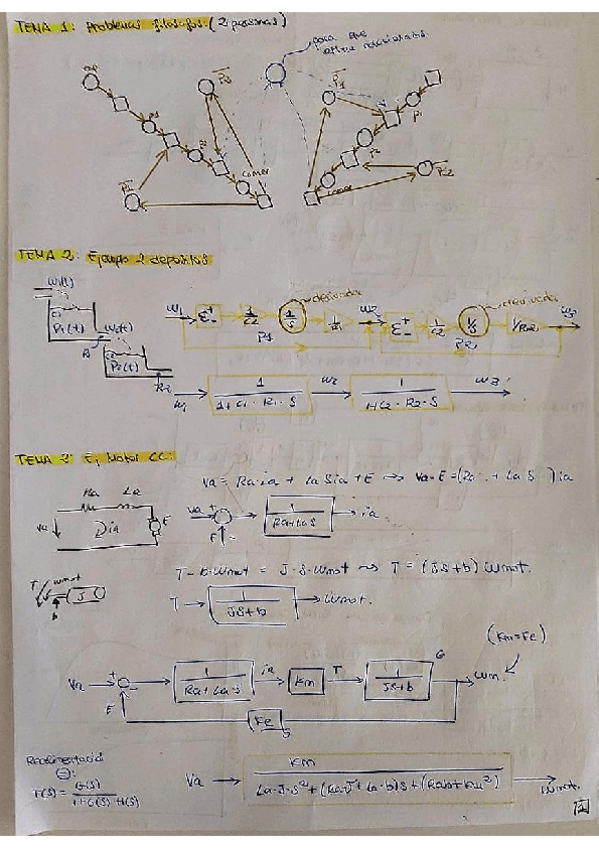 TEMA 1: Problemas filósofos. (2 personas)
para que
P3
P1
P1
P2
P2
P1
comer
comer
P2
TEMA 2: Ejemplo 2 depósitos
W1(t)
C1
P1(t)
W2(t)
R1
P2(t)
R2
W1
Σ
1/C2
1/S
derivada
1/R1
W2
Σ
1/C2
1/S
derivada
1/R2
W3
P1
P2
W1
1
1+C1·R1·S
W2
1
1+C2·R2·S
W3
TEMA 3: Ej Motor CC:
Va = Ra·ia + La S ia + E → Va-E = (Ra + La S) ia
Ra La
Va
ia
E
Va
+
E -
1
Ra+LaS
ia
T - b·Wmot = J·S·Wmot → T = (JS+b) Wmot.
T
Wmot
J
b
T
1
JS+b
Wmot.
(Km=Ke)
Va
+
-
E
1
Ra+La·S
ia
Km
T
1
JS+b
G
Wm.
Ke
Realimentación
⊖:
T(S) = G(S)
1+G(S)·H(S)
Va
Km
La·J·S² + (Ra·J + La·b)S + (Ra·b+Km²)
Wmot.
1